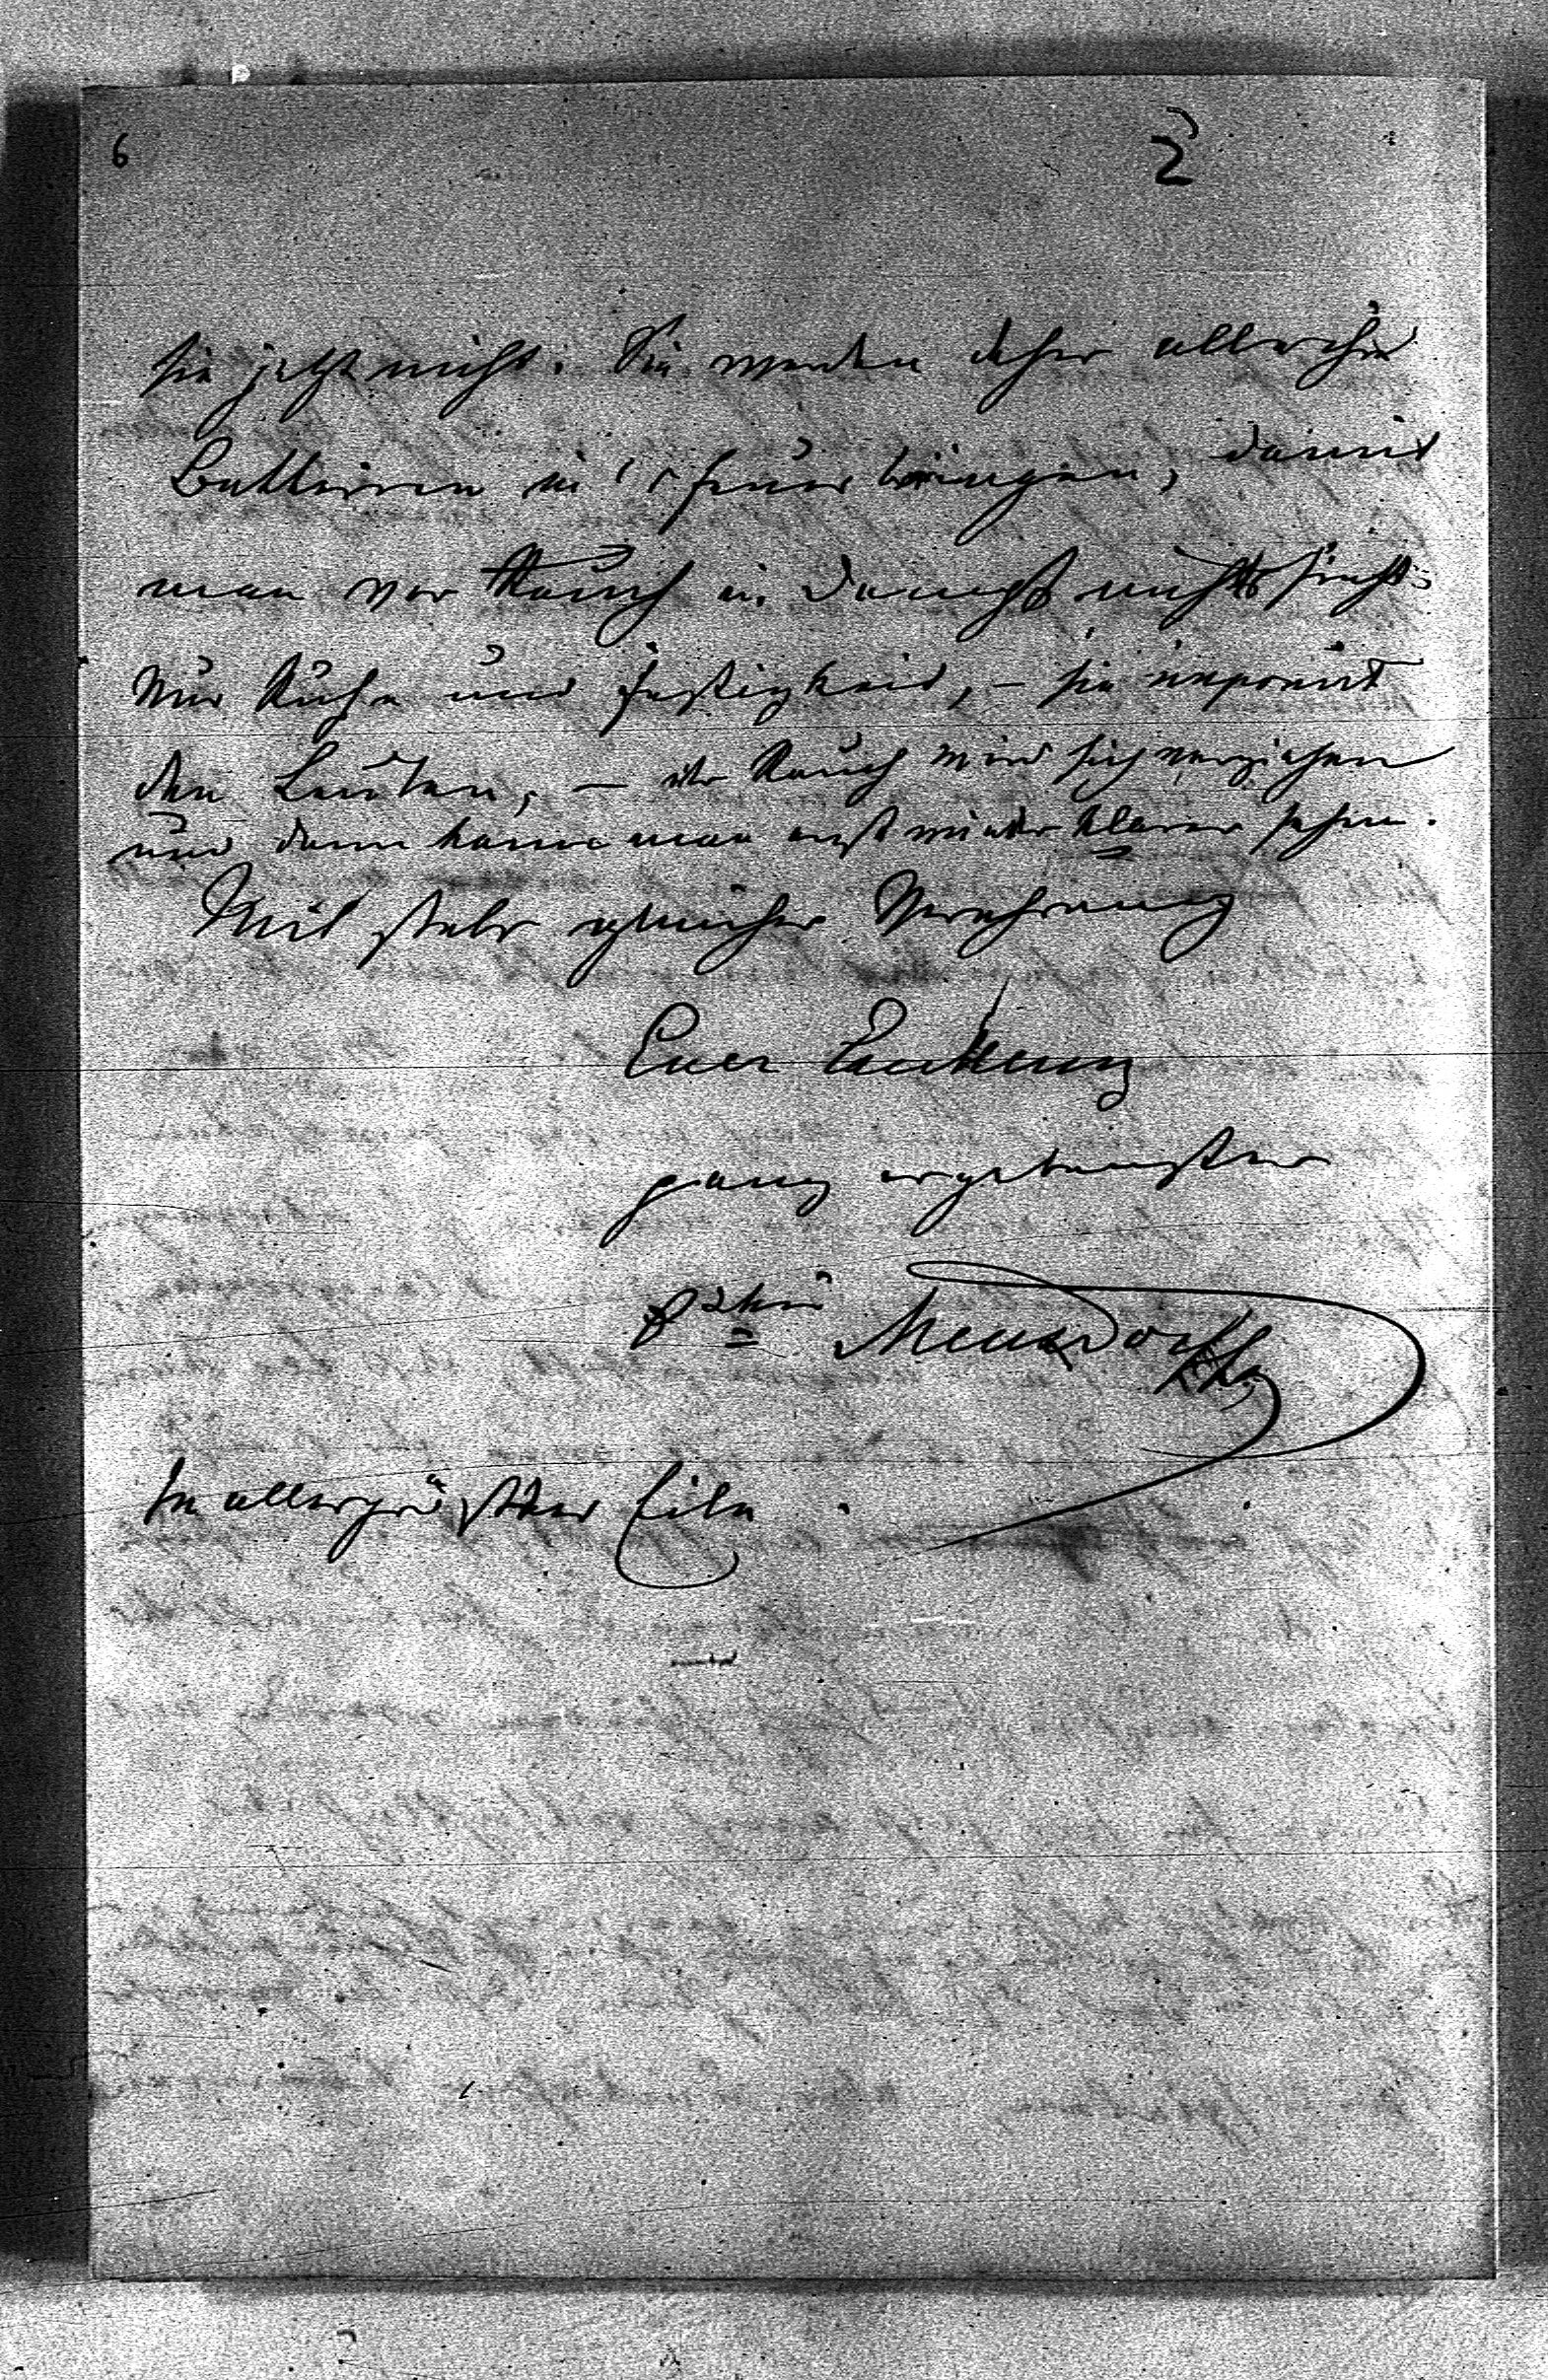 6
2
sie jetzt nicht. Sie werden daher allerhand
Batterien in's Feuer bringen, damit
man vor Rauch u. Dampf nichts sieht.
Nur Ruhe und Festigkeit, – sie imponirt
den Leuten, – der Rauch wird sich verziehen
und dann kann man erst wieder klarer sehen.
Mit stets gleicher Verehrung
Euer Excellenz
ganz ergebenster
Mensdorff
In allergrößter Eile.